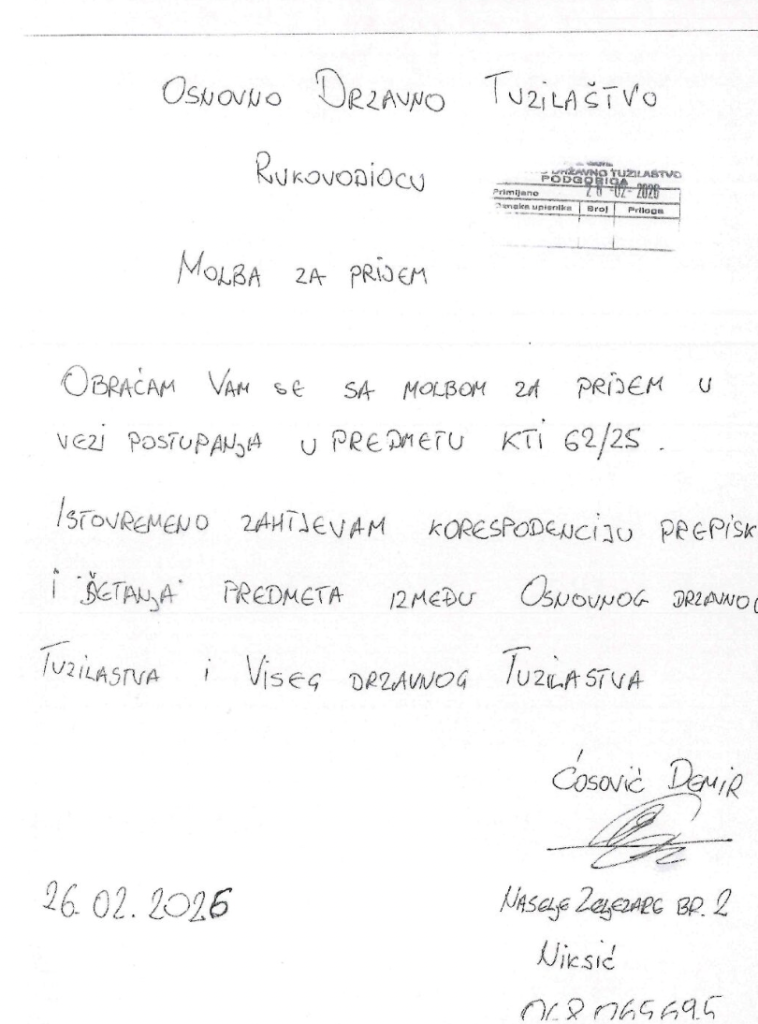 OSNOVNO DRZAVNO TUZILAŠTVO
RUKOVODIOCU
DRŽAVNO TUŽILAŠTVO
PODGORICA
Primljeno 26-02-2026
Oznaka upisnika Broj Priloga
MOLBA ZA PRIJEM
OBRAĆAM VAM SE SA MOLBOM ZA PRIJEM U
VEZI POSTUPANJA U PREDMETU KTI 62/25.
ISTOVREMENO ZAHTJEVAM KORESPODENCIJU PREPISK
I "ŠETANJA" PREDMETA IZMEĐU OSNOVNOG DRZAVNOG
TUZILASTVA I VISEG DRZAVNOG TUZILASTVA
ĆOSOVIĆ DEMIR
26.02.2026
NASELJE ZELJEZARE BR. 2
NIKSIĆ